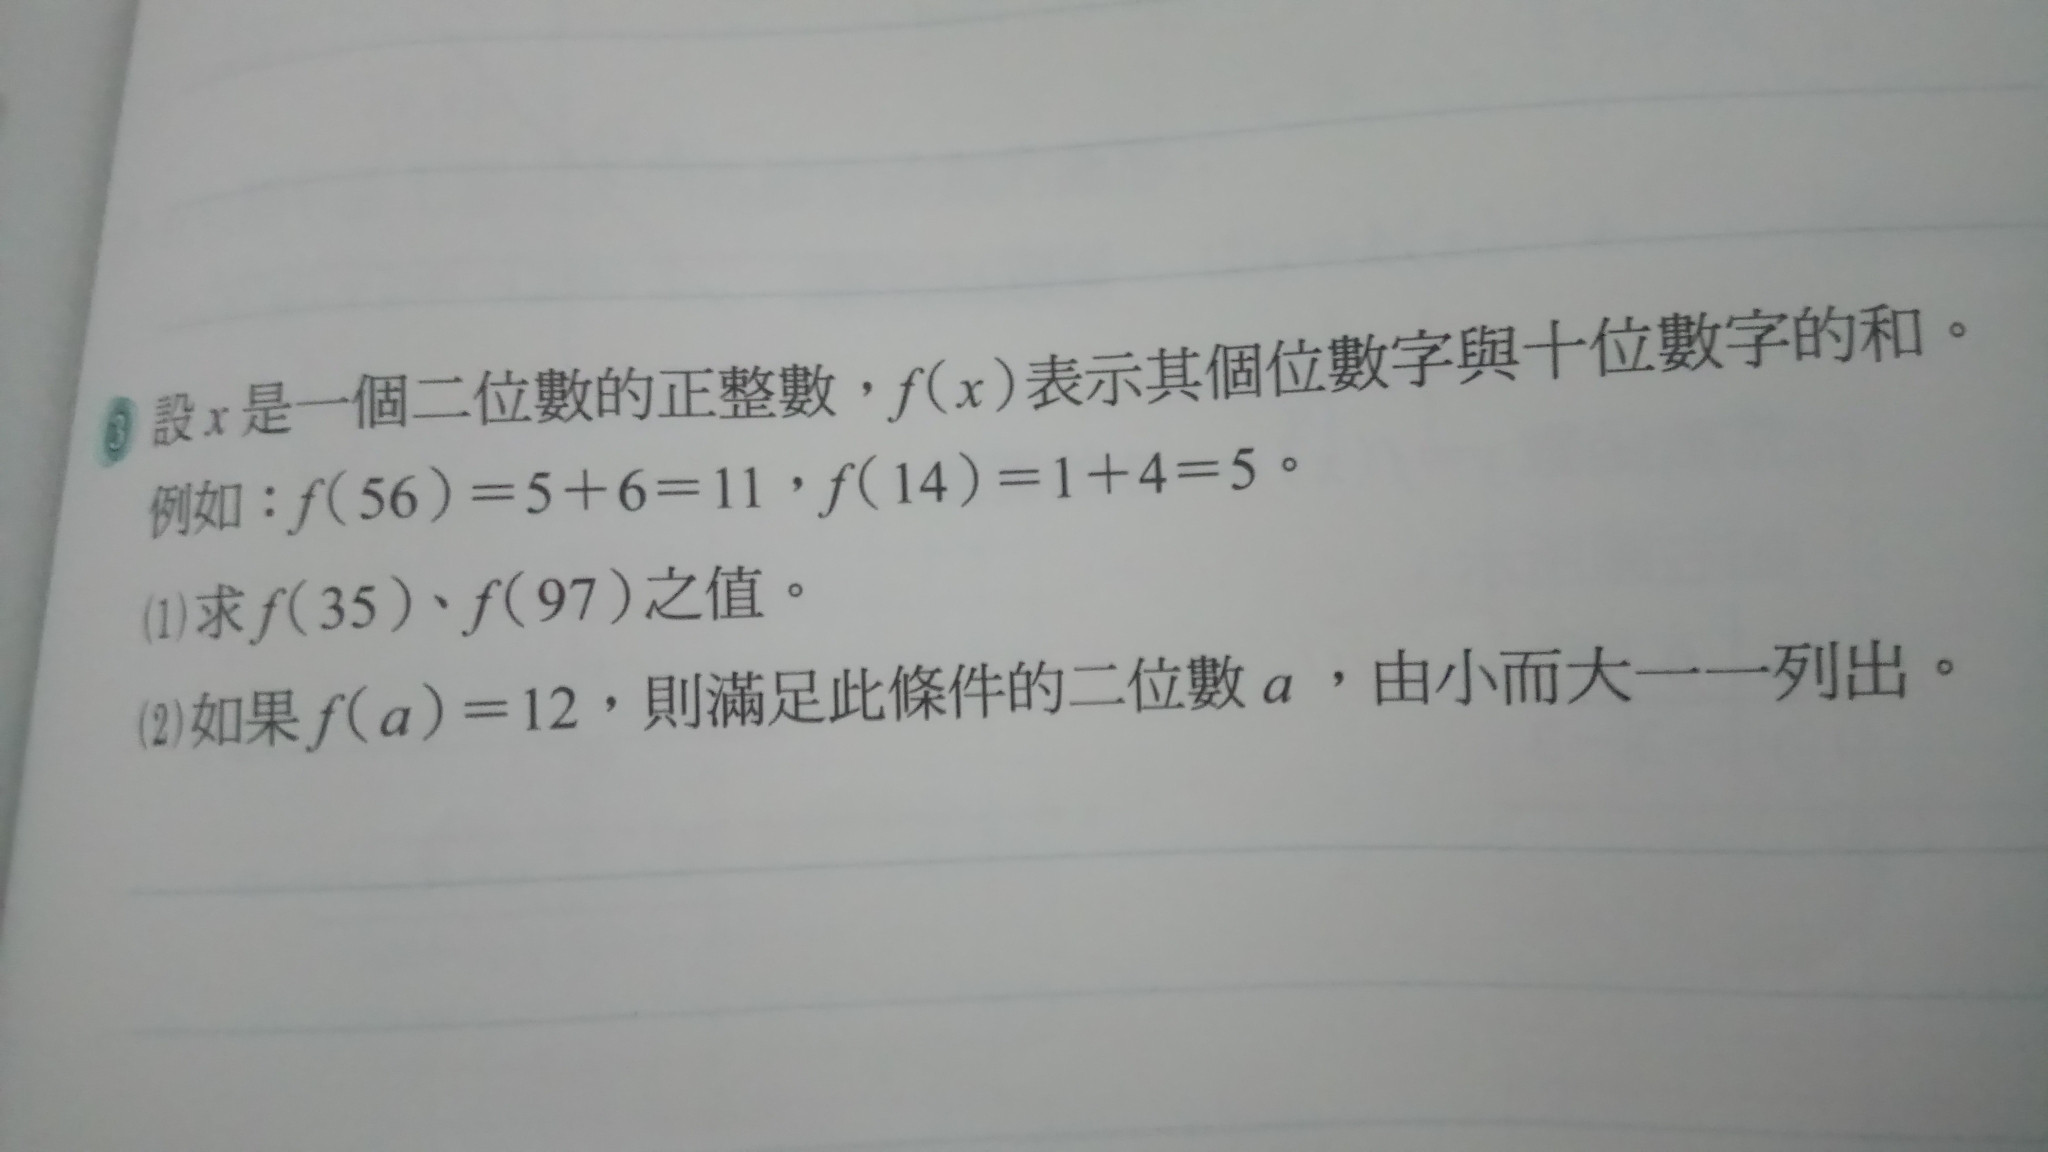 3 設 x 是一個二位數的正整數，f(x)表示其個位數字與十位數字的和。
例如：f(56)＝5＋6＝11，f(14)＝1＋4＝5。
(1)求 f(35)、f(97)之值。
(2)如果 f(a)＝12，則滿足此條件的二位數 a ，由小而大一一列出。